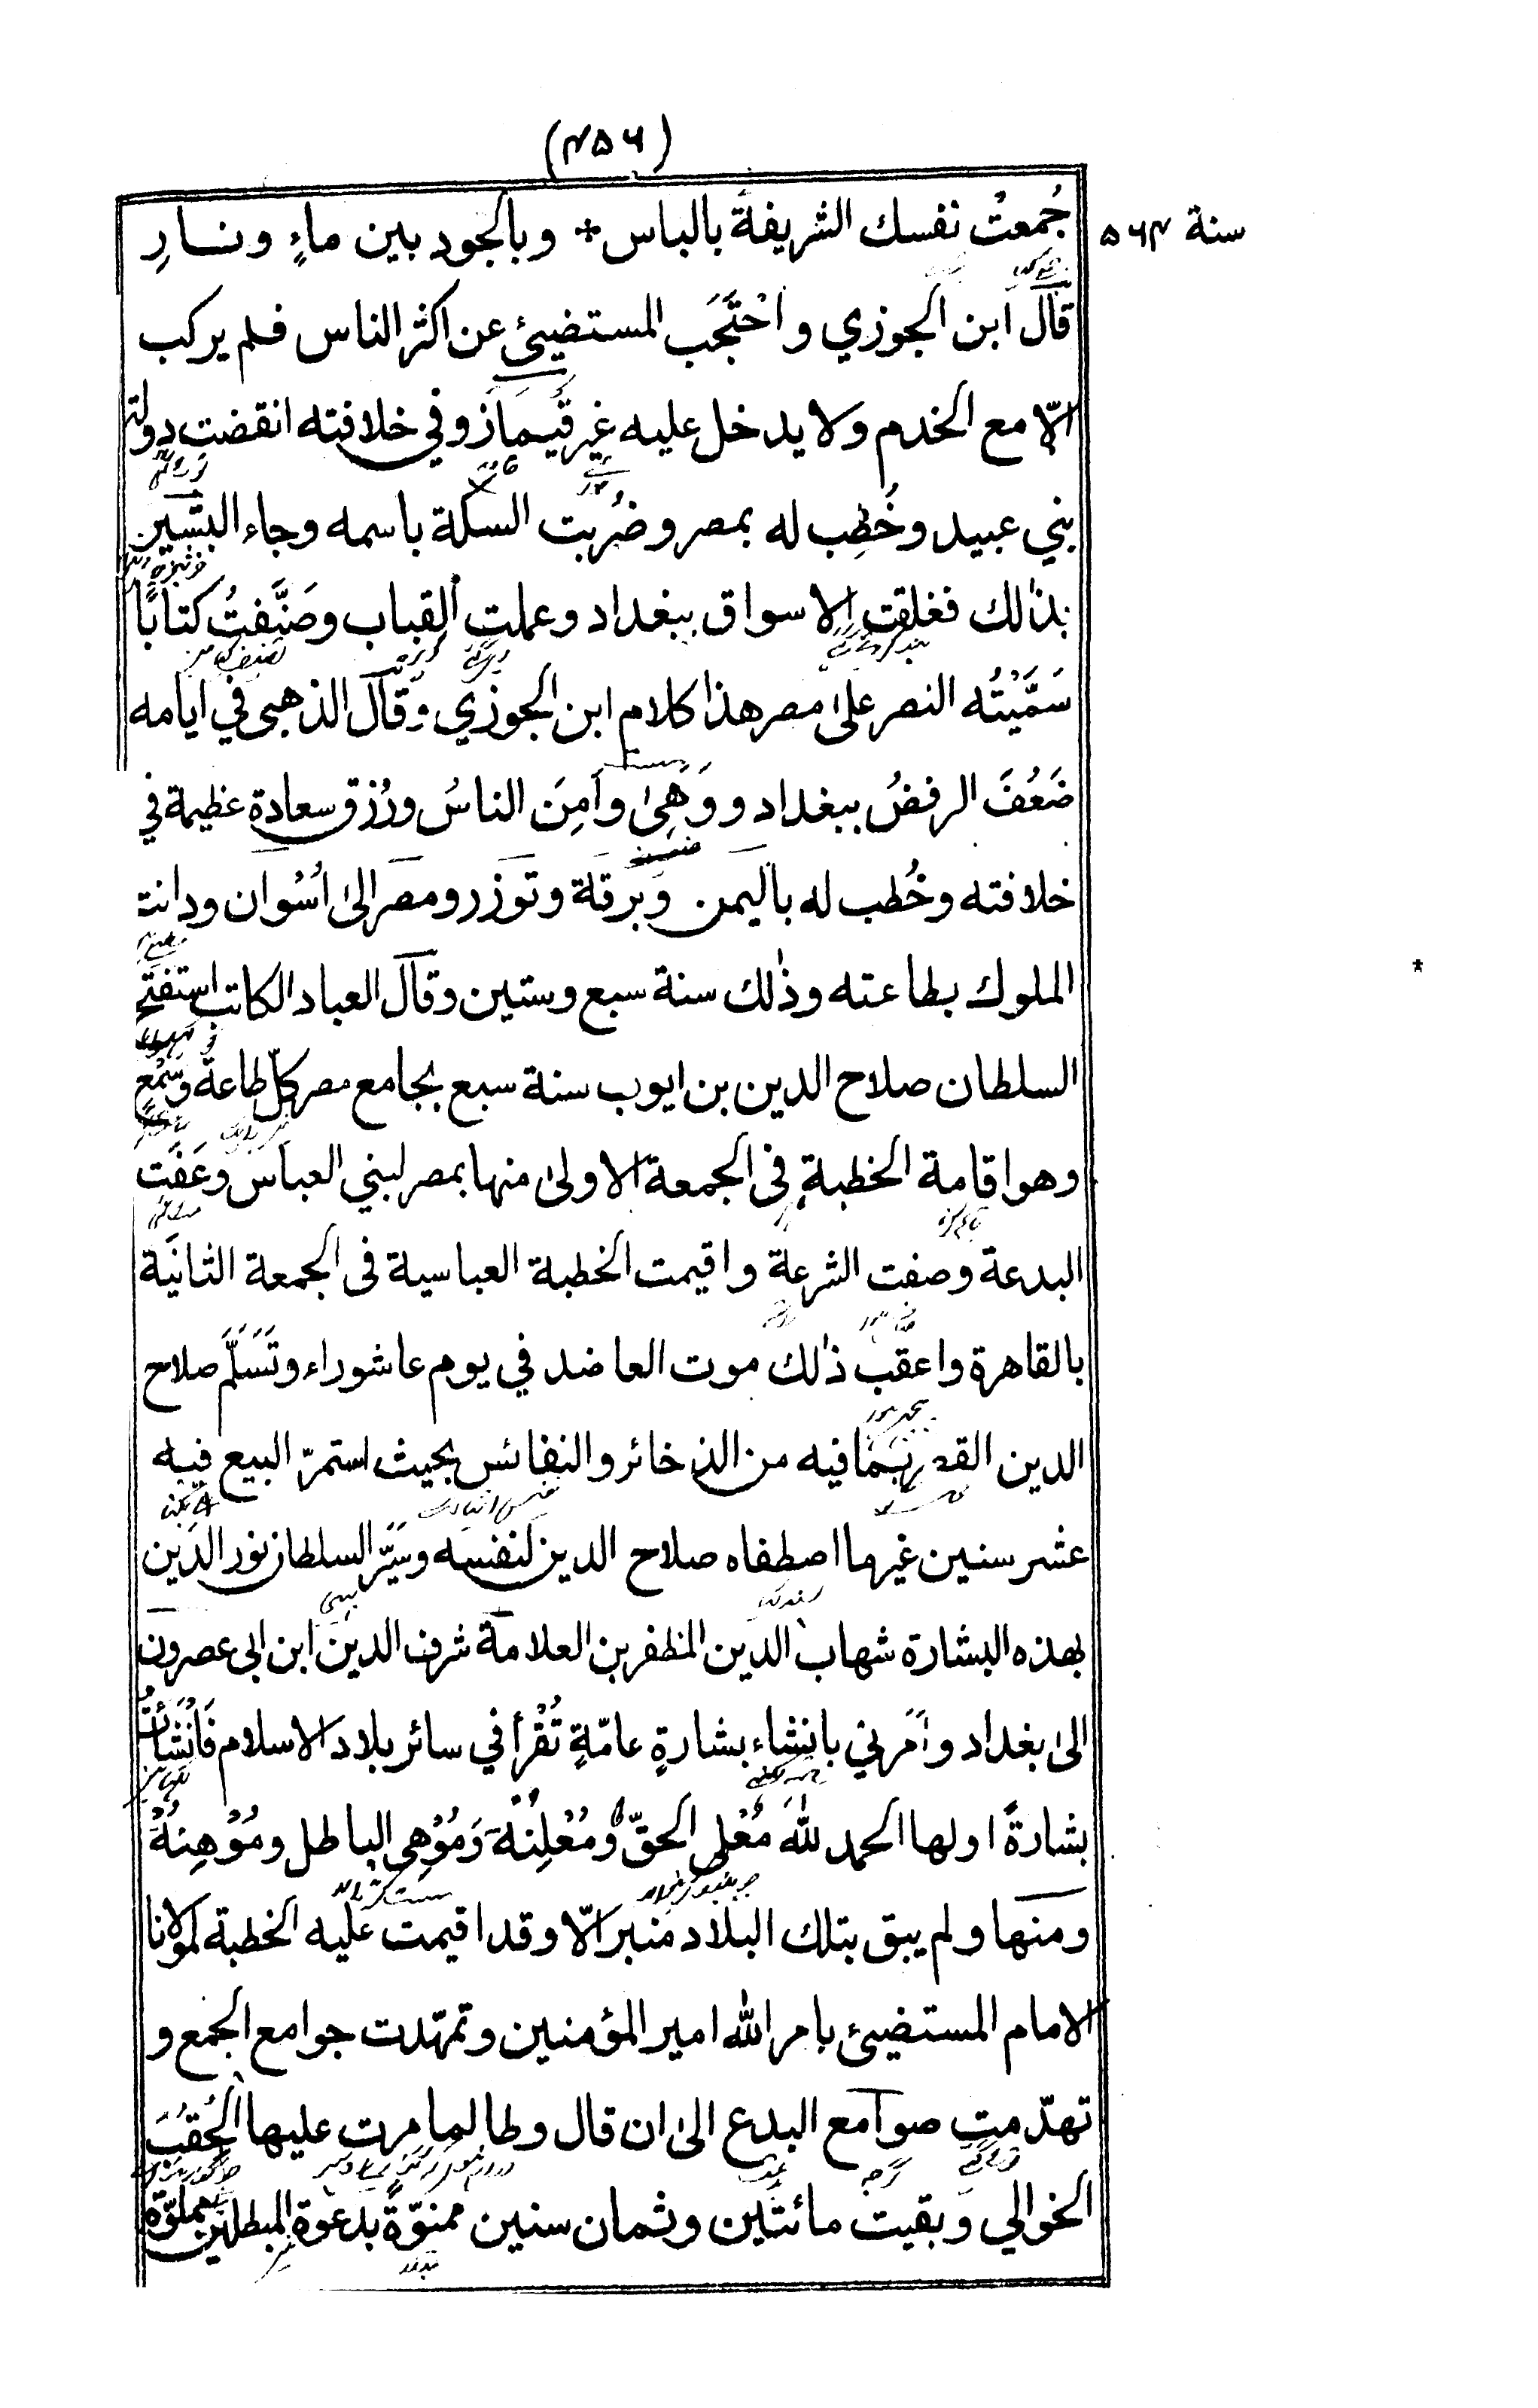 (۴۵۶)
سنة ۵۶۴
جُمِعتْ نفسك الشريفة بالباس * وبالجود بين ماءٍ ونارِ
قال ابن الجوزي واحْتَجَب المستضيئ عن اكثر الناس فلم يركب
الّا مع الخدم ولا يدخل عليه غير قَيمَاز وفي خلافته انقضت دولة
بني عبيد وخُطِب له بمصر وضُربت السكة باسمه وجاء البشير
بذٰلك فغلقت الاسواق ببغداد وعملت القباب وصَنَّفتُ كتابًا
سَمَّيْتُه النصر علىٰ مصر هذا كلام ابن الجوزي وقال الذهبي في ايامه
ضَعُفَ الرفضُ ببغداد ووَهِىٰ وأمِنَ الناسُ ورُزق سعادة عظيمة في
خلافته وخُطب له باليمن وبرقة وتَوزر ومصر الىٰ اُسْوان ودانت
الملوك بطاعته وذٰلك سنة سبع وستين وقال العباد الكاتب استفتح
السلطان صلاح الدين بن ايوب سنة سبع بجامع مصر كلّ طاعة وسَمْع
وهو اقامة الخطبة في الجمعة الاولىٰ منها بمصر لبني العباس وعَفَت
البدعة وصفت الشرعة واقيمت الخطبة العباسية فى الجمعة الثانية
بالقاهرة واعقب ذٰلك موت العاضد في يوم عاشوراء وتَسَلَّمَ صلاح
الدين القصر بما فيه من الذخائر والنفائس بحيث استمرّ البيع فيه
عشر سنين غير ما اصطفاه صلاح الدين لنفسه وسَيَّر السلطان نور الدين
بهذه البشارة شهاب الدين المظفر بن العلامة شرف الدين ابن ابى عصرون
الىٰ بغداد وأمَرني بانشاء بشارةٍ عامّةٍ تُقْرأ في سائر بلاد الاسلام فَاَنْشَأتُ
بشارةً اولها الحمد للّٰه مُعْلي الحقّ ومُعْلِنُهُ وَمُوْهِي الباطل ومُوْهِنُهُ
ومنها ولم يبق بتلك البلاد منبر الّا وقد اقيمت عليه الخطبة لمولانا
الامام المستضيئ بامر اللّٰه امير المؤمنين وتمهّدت جوامع الجمع و
تهدّمت صوامع البدع الىٰ ان قال وطالما مرت عليها الحُقُبُ
الخوالي وبقيت مائتين وثمان سنين ممنوّةً بدعوة المبطلين مملوّة